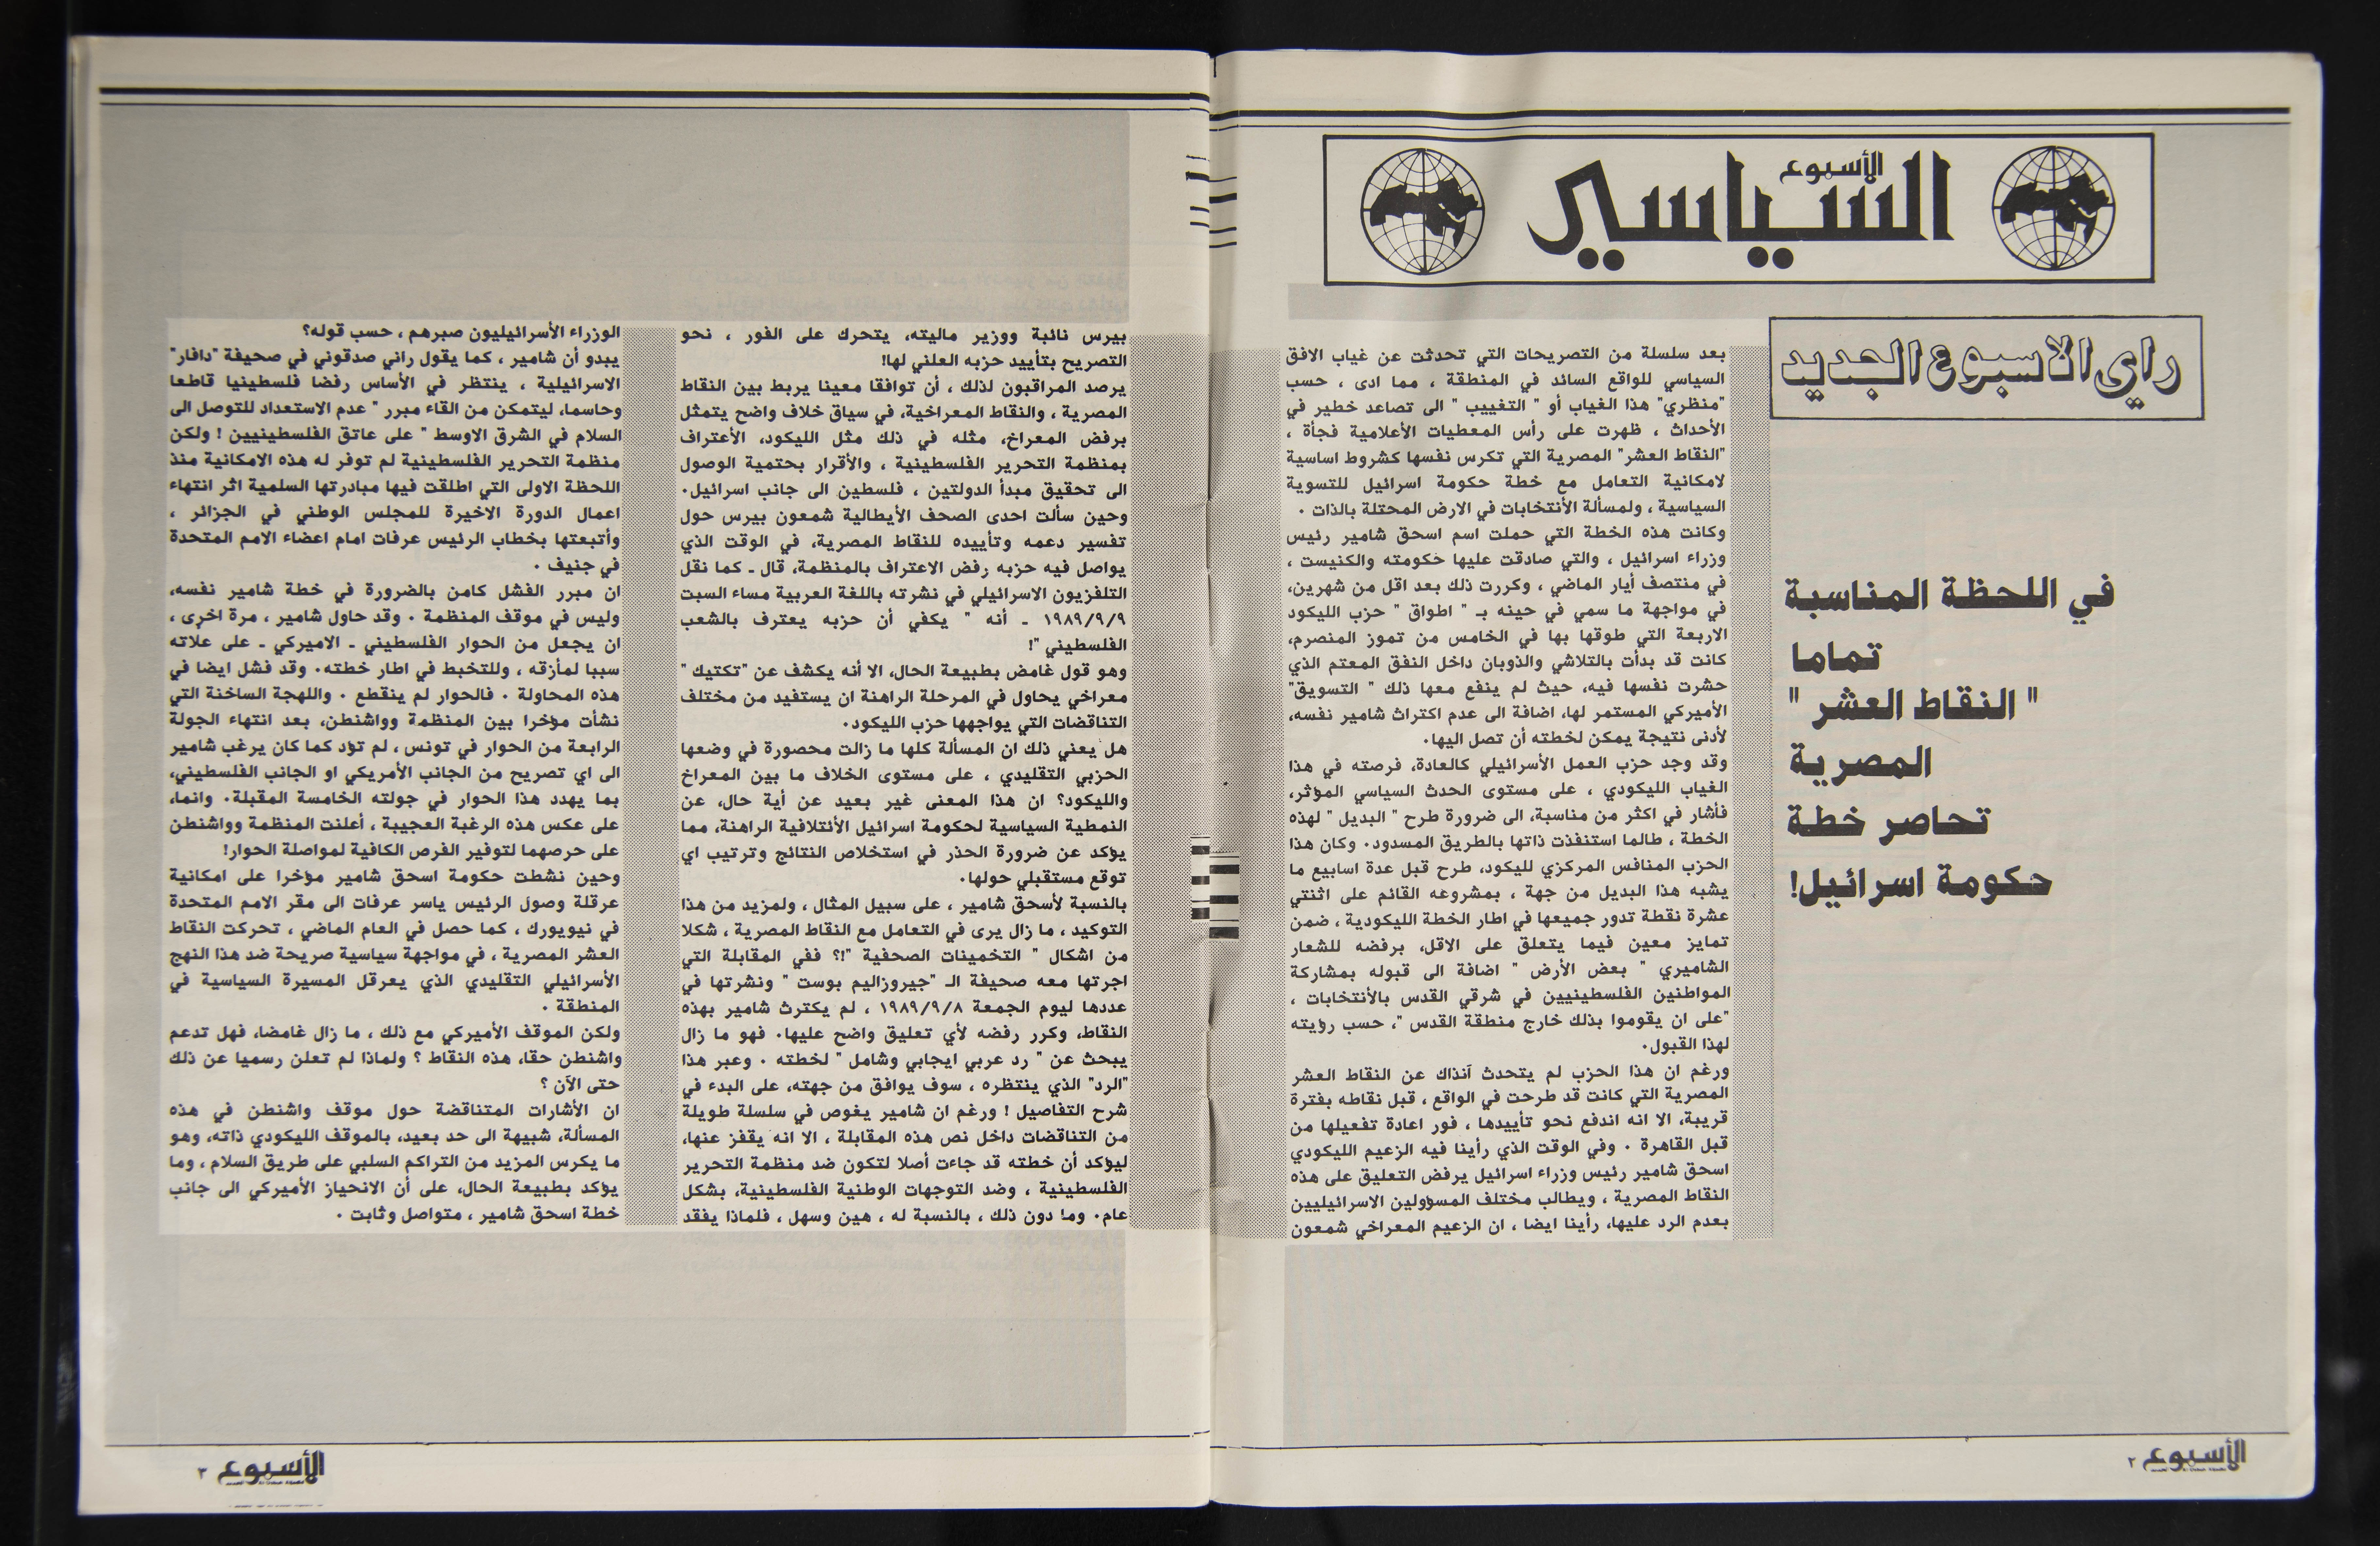 الأسبوع
السياسي
راي الاسبوع الجديد
في اللحظة المناسبة
تماما
" النقاط العشر "
المصرية
تحاصر خطة
حكومة اسرائيل!
بعد سلسلة من التصريحات التي تحدثت عن غياب الافق
السياسي للواقع السائد في المنطقة ، مما ادى ، حسب
"منظري" هذا الغياب أو " التغييب " الى تصاعد خطير في
الأحداث ، ظهرت على رأس المعطيات الأعلامية فجأة ،
"النقاط العشر" المصرية التي تكرس نفسها كشروط اساسية
لامكانية التعامل مع خطة حكومة اسرائيل للتسوية
السياسية ، ولمسألة الأنتخابات في الارض المحتلة بالذات .
وكانت هذه الخطة التي حملت اسم اسحق شامير رئيس
وزراء اسرائيل ، والتي صادقت عليها حكومته والكنيست ،
في منتصف أيار الماضي ، وكررت ذلك بعد اقل من شهرين،
في مواجهة ما سمي في حينه بـ " اطواق " حزب الليكود
الاربعة التي طوقها بها في الخامس من تموز المنصرم،
كانت قد بدأت بالتلاشي والذوبان داخل النفق المعتم الذي
حشرت نفسها فيه، حيث لم ينفع معها ذلك " التسويق"
الأميركي المستمر لها، اضافة الى عدم اكتراث شامير نفسه،
لأدنى نتيجة يمكن لخطته أن تصل اليها.
وقد وجد حزب العمل الأسرائيلي كالعادة، فرصته في هذا
الغياب الليكودي ، على مستوى الحدث السياسي المؤثر،
فأشار في اكثر من مناسبة، الى ضرورة طرح " البديل " لهذه
الخطة ، طالما استنفذت ذاتها بالطريق المسدود. وكان هذا
الحزب المنافس المركزي لليكود، طرح قبل عدة اسابيع ما
يشبه هذا البديل من جهة ، بمشروعه القائم على اثنتي
عشرة نقطة تدور جميعها في اطار الخطة الليكودية ، ضمن
تمايز معين فيما يتعلق على الاقل، برفضه للشعار
الشاميري " بعض الأرض " اضافة الى قبوله بمشاركة
المواطنين الفلسطينيين في شرقي القدس بالأنتخابات ،
"على ان يقوموا بذلك خارج منطقة القدس "، حسب رؤيته
لهذا القبول.
ورغم ان هذا الحزب لم يتحدث آنذاك عن النقاط العشر
المصرية التي كانت قد طرحت في الواقع ، قبل نقاطه بفترة
قريبة، الا انه اندفع نحو تأييدها ، فور اعادة تفعيلها من
قبل القاهرة . وفي الوقت الذي رأينا فيه الزعيم الليكودي
اسحق شامير رئيس وزراء اسرائيل يرفض التعليق على هذه
النقاط المصرية ، ويطالب مختلف المسؤولين الاسرائيليين
بعدم الرد عليها، رأينا ايضا ، ان الزعيم المعراخي شمعون
الأسبوع ٢
بيرس نائبة ووزير ماليته، يتحرك على الفور ، نحو
التصريح بتأييد حزبه العلني لها!
يرصد المراقبون لذلك ، أن توافقا معينا يربط بين النقاط
المصرية ، والنقاط المعراخية، في سياق خلاف واضح يتمثل
برفض المعراخ، مثله في ذلك مثل الليكود، الأعتراف
بمنظمة التحرير الفلسطينية ، والأقرار بحتمية الوصول
الى تحقيق مبدأ الدولتين ، فلسطين الى جانب اسرائيل.
وحين سألت احدى الصحف الأيطالية شمعون بيرس حول
تفسير دعمه وتأييده للنقاط المصرية، في الوقت الذي
يواصل فيه حزبه رفض الاعتراف بالمنظمة، قال ـ كما نقل
التلفزيون الاسرائيلي في نشرته باللغة العربية مساء السبت
١٩٨٩/٩/٩ ـ أنه " يكفي أن حزبه يعترف بالشعب
الفلسطيني "!
وهو قول غامض بطبيعة الحال، الا أنه يكشف عن "تكتيك "
معراخي يحاول في المرحلة الراهنة ان يستفيد من مختلف
التناقضات التي يواجهها حزب الليكود.
هل يعني ذلك ان المسألة كلها ما زالت محصورة في وضعها
الحزبي التقليدي ، على مستوى الخلاف ما بين المعراخ
والليكود؟ ان هذا المعنى غير بعيد عن أية حال، عن
النمطية السياسية لحكومة اسرائيل الأئتلافية الراهنة، مما
يؤكد عن ضرورة الحذر في استخلاص النتائج وترتيب اي
توقع مستقبلي حولها.
بالنسبة لأسحق شامير ، على سبيل المثال ، ولمزيد من هذا
التوكيد ، ما زال يرى في التعامل مع النقاط المصرية ، شكلا
من اشكال " التخمينات الصحفية "!؟ ففي المقابلة التي
اجرتها معه صحيفة الـ "جيروزاليم بوست " ونشرتها في
عددها ليوم الجمعة ١٩٨٩/٩/٨ ، لم يكترث شامير بهذه
النقاط، وكرر رفضه لأي تعليق واضح عليها. فهو ما زال
يبحث عن " رد عربي ايجابي وشامل " لخطته . وعبر هذا
"الرد" الذي ينتظره ، سوف يوافق من جهته، على البدء في
شرح التفاصيل ! ورغم ان شامير يغوص في سلسلة طويلة
من التناقضات داخل نص هذه المقابلة ، الا انه يقفز عنها،
ليؤكد أن خطته قد جاءت أصلا لتكون ضد منظمة التحرير
الفلسطينية ، وضد التوجهات الوطنية الفلسطينية، بشكل
عام. وما دون ذلك ، بالنسبة له ، هين وسهل ، فلماذا يفقد
الوزراء الأسرائيليون صبرهم ، حسب قوله؟
يبدو أن شامير ، كما يقول راني صدقوني في صحيفة "دافار"
الاسرائيلية ، ينتظر في الأساس رفضا فلسطينيا قاطعا
وحاسما، ليتمكن من القاء مبرر " عدم الاستعداد للتوصل الى
السلام في الشرق الاوسط " على عاتق الفلسطينيين ! ولكن
منظمة التحرير الفلسطينية لم توفر له هذه الامكانية منذ
اللحظة الاولى التي اطلقت فيها مبادرتها السلمية اثر انتهاء
اعمال الدورة الاخيرة للمجلس الوطني في الجزائر ،
وأتبعتها بخطاب الرئيس عرفات امام اعضاء الامم المتحدة
في جنيف .
ان مبرر الفشل كامن بالضرورة في خطة شامير نفسه،
وليس في موقف المنظمة . وقد حاول شامير ، مرة اخرى ،
ان يجعل من الحوار الفلسطيني ـ الاميركي ـ على علاته
سببا لمأزقه ، وللتخبط في اطار خطته. وقد فشل ايضا في
هذه المحاولة . فالحوار لم ينقطع . واللهجة الساخنة التي
نشأت مؤخرا بين المنظمة وواشنطن، بعد انتهاء الجولة
الرابعة من الحوار في تونس ، لم تؤد كما كان يرغب شامير
الى اي تصريح من الجانب الأمريكي او الجانب الفلسطيني،
بما يهدد هذا الحوار في جولته الخامسة المقبلة. وانما،
على عكس هذه الرغبة العجيبة ، أعلنت المنظمة وواشنطن
على حرصهما لتوفير الفرص الكافية لمواصلة الحوار!
وحين نشطت حكومة اسحق شامير مؤخرا على امكانية
عرقلة وصول الرئيس ياسر عرفات الى مقر الامم المتحدة
في نيويورك ، كما حصل في العام الماضي ، تحركت النقاط
العشر المصرية ، في مواجهة سياسية صريحة ضد هذا النهج
الأسرائيلي التقليدي الذي يعرقل المسيرة السياسية في
المنطقة .
ولكن الموقف الأميركي مع ذلك ، ما زال غامضا، فهل تدعم
واشنطن حقا، هذه النقاط ؟ ولماذا لم تعلن رسميا عن ذلك
حتى الآن ؟
ان الأشارات المتناقضة حول موقف واشنطن في هذه
المسألة، شبيهة الى حد بعيد، بالموقف الليكودي ذاته، وهو
ما يكرس المزيد من التراكم السلبي على طريق السلام ، وما
يؤكد بطبيعة الحال، على أن الانحياز الأميركي الى جانب
خطة اسحق شامير ، متواصل وثابت .
الأسبوع ٣